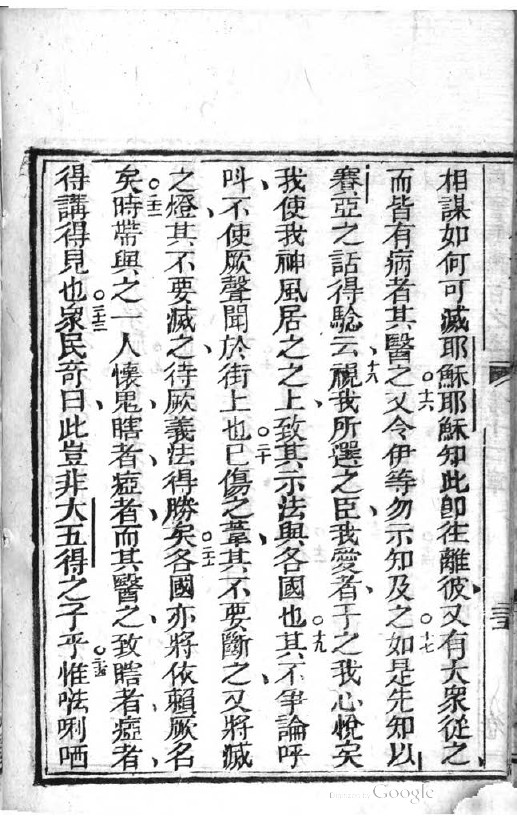 相謀如何可滅耶穌耶穌知此即往離彼又有大衆從之
而皆有病者其醫之○十六又令伊等勿示知及之○十七如是先知以
賽亞之話得騐云○十八視我所選之臣我愛者于之我心悅矣
我使我神風居之之上致其示法與各國也○十九其不爭論呼
呌不使厥聲聞於街上也○二十已傷之葦其不要斷之又將滅
之燈其不要滅之待厥義法得勝矣○二十一各國亦將依賴厥名
矣○二十二時帶與之一人懷鬼瞎者瘂者而其醫之致瞎者瘂者
得講得見也○二十三衆民奇曰此豈非大五得之子乎○二十四惟𠵽唎哂
Digitized by Google